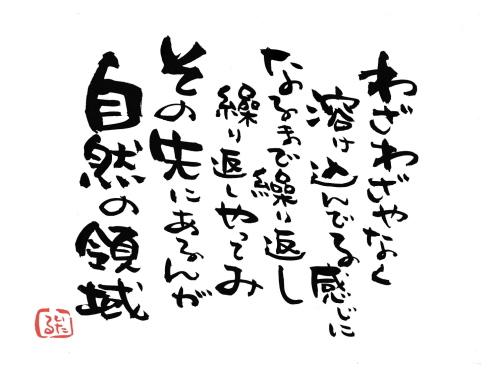 わざわざやなく
溶け込んでる感じに
なるまで繰り返し
繰り返しやってみ
その先にあるんが
自然の領域